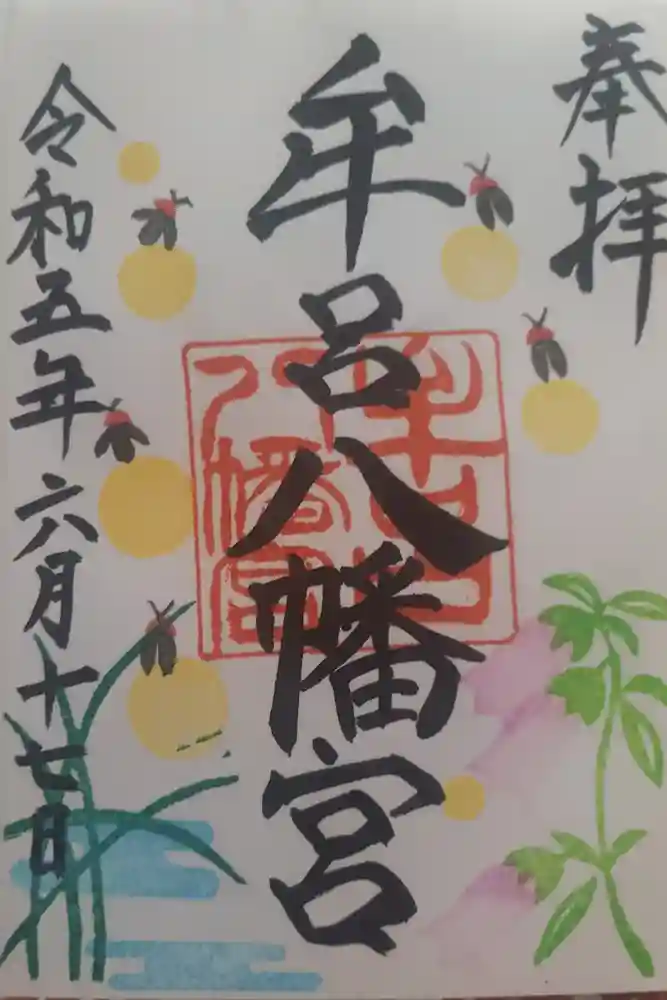 奉拝
牟呂八幡宮
牟呂八幡宮
令和五年六月十七日